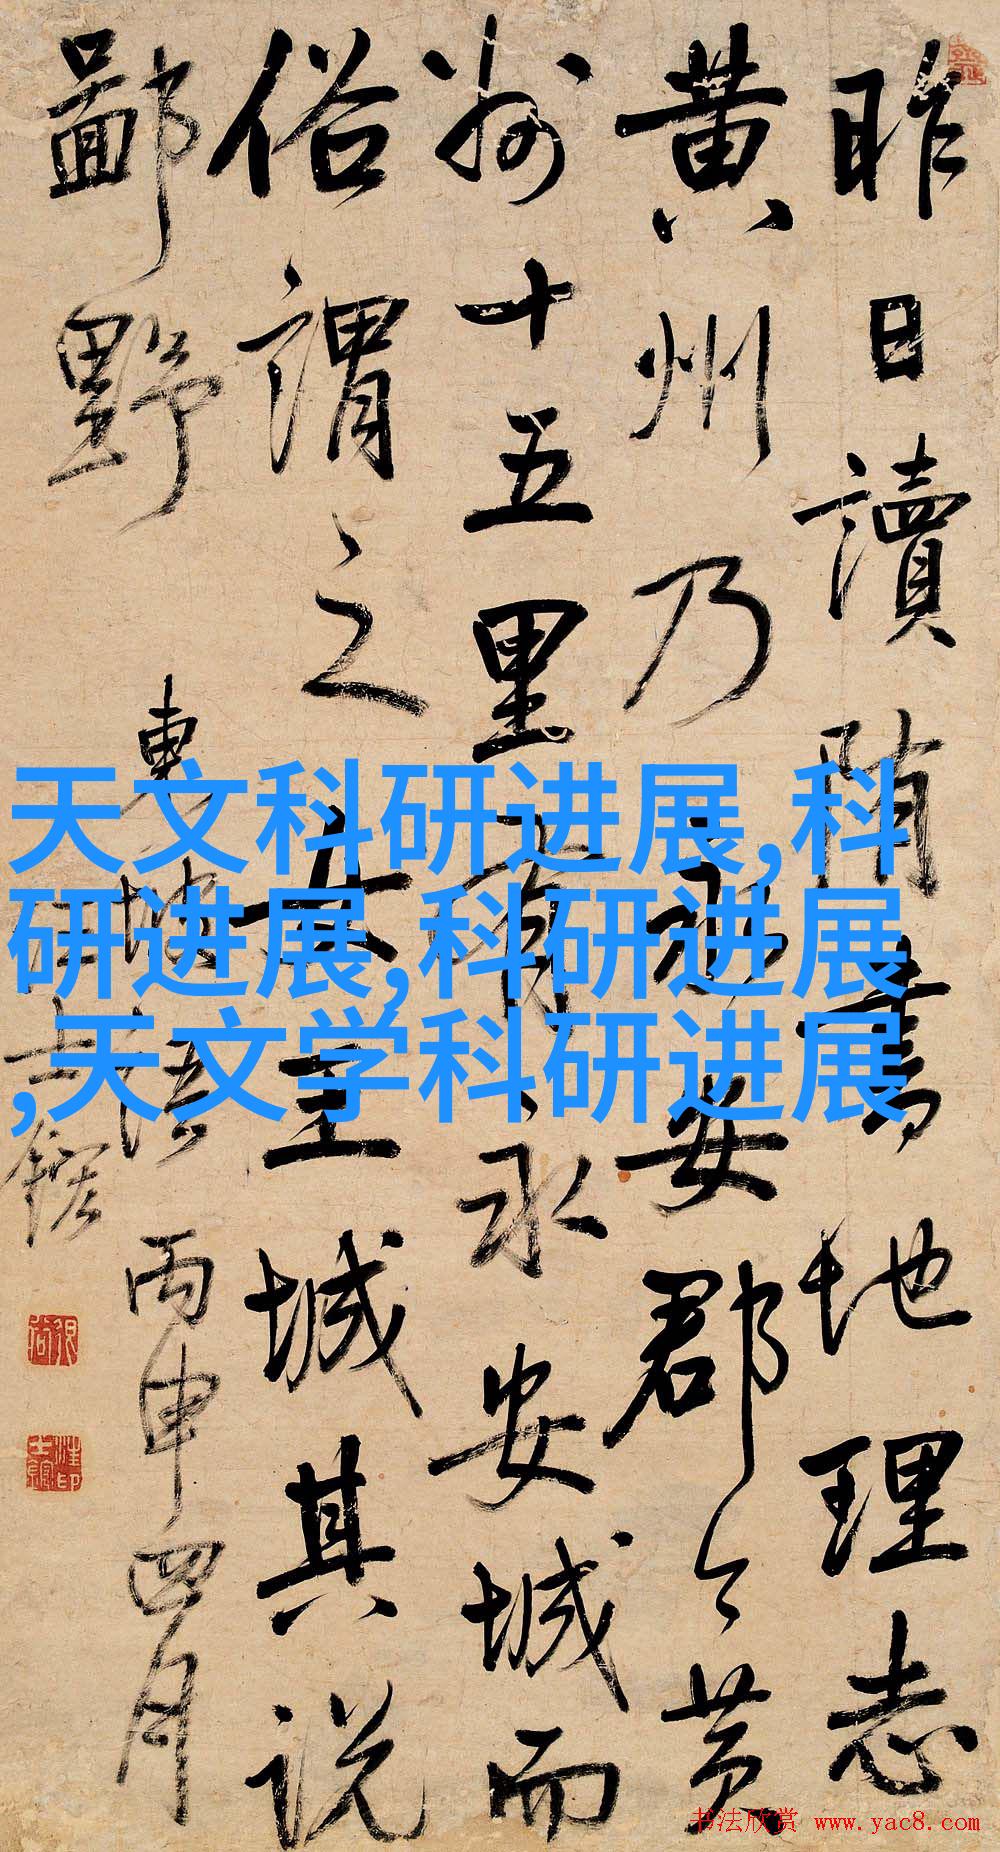 昨日讀隋書地理志
黄州乃永安郡今黄
州十五里有永安城而
俗謂之女王城其説
鄙野
東坡語 丙申四月
汪士鋐
天文科研进展,科
研进展,科研进展
,天文学科研进展
书法欣赏 www.yac8.com